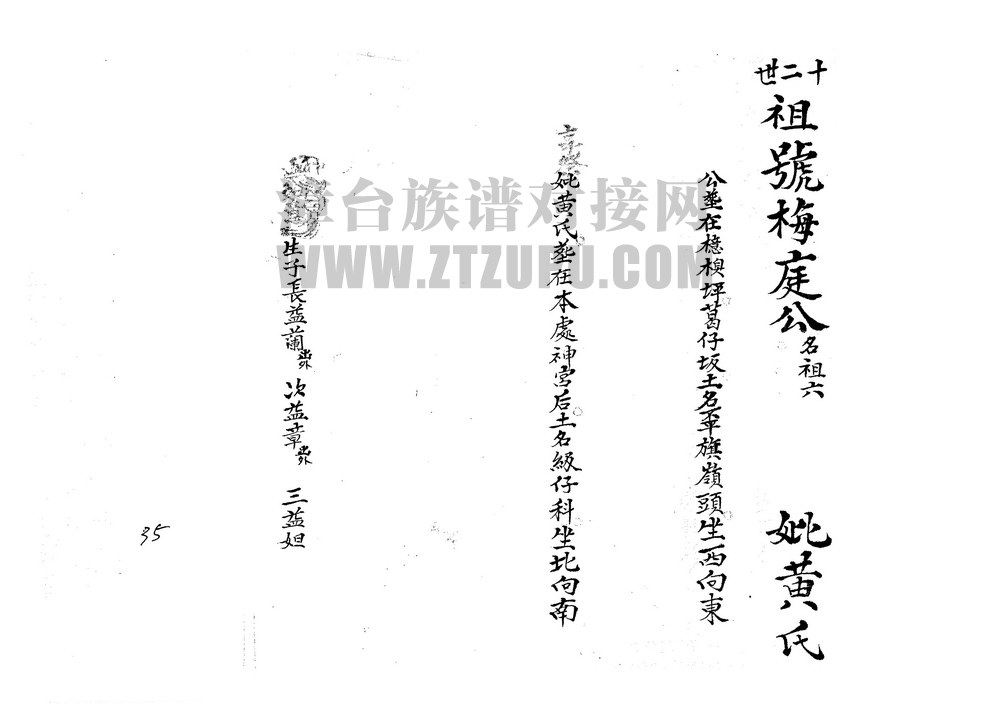 十二世
祖號梅庭公名祖六 妣黃氏
公葬在檍梘坪葛仔坂土名軍旗嶺頭坐西向東
妣黃氏葬在本處神宮后土名級仔科坐北向南
生子長益蘭 次益章 三益妲
35
漳台族谱对接网
WWW.ZTZUPU.COM